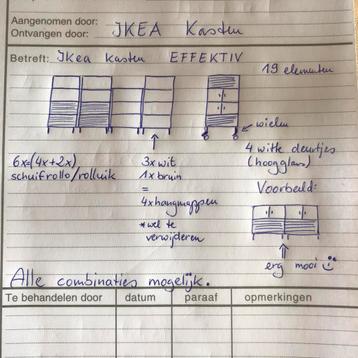 Aangenomen door:
Ontvangen door: IKEA Kasten
Betreft: IKea kasten EFFEKTIV
19 elementen
wielen
4 witte deurtjes
(hoogglans)
6x=(4x+2x)
schuifrollo/rolluik
3x wit
1x bruin
=
4x hangmappen
*wel te
verwijderen
Voorbeeld:
erg mooi
Alle combinaties mogelijk.
Te behandelen door datum paraaf opmerkingen